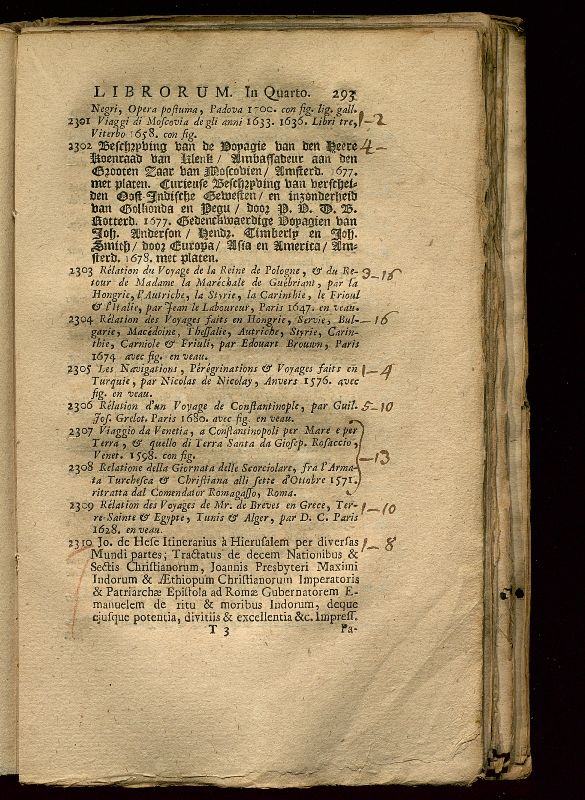 LIBRORUM. In Quarto. 293
Negri, Opera postuma, Padova 1700. con fig. lig. gall.
2301 Viaggi di Moscovia de gli anni 1633. 1636. Libri tre, 1-2
Viterbo 1658. con fig.
2302 Beschryving van de Voyagie van den Heere 4-
Koenraad van Klenk/ Ambassadeur aan den
Grooten Zaar van Moscovien/ Amsterd. 1677.
met platen. Curieuse Beschryving van verschei-
den Oost-Indische Gewesten/ en inzonderheid
van Golkonda en Pegu/ door P. V. D. B.
Rotterd. 1677. Gedenkwaerdige Voyagien van
Joh. Anderson/ Hendr. Timberly en Joh.
Smith/ door Europa/ Asia en America/ Am-
sterd. 1678. met platen.
2303 Rélation du Voyage de la Reine de Pologne, & du Re- 3-15
tour de Madame la Maréchale de Guébriant, par la
Hongrie, l'Autriche, la Styrie, la Carinthie, le Frioul
& l'Italie, par Jean le Laboureur, Paris 1647. en veau.
2304 Rélation des Voyages faits en Hongrie, Servie, Bul- -16
garie, Macédoine, Thessalie, Autriche, Styrie, Carin-
thie, Carniole & Friuli, par Edouart Brouwn, Paris
1674 avec fig. en veau.
2305 Les Navigations, Pérégrinations & Voyages faits en 1-4
Turquie, par Nicolas de Nicolay, Anvers 1576. avec
fig. en veau.
2306 Rélation d'un Voyage de Constantinople, par Guil. 5-10
Jos. Grelot. Paris 1680. avec fig. en veau.
2307 Viaggio da Venetia, a Constantinopoli per Mare e per
Terra, & quello di Terra Santa da Giosep. Rosaccio,
Venet. 1598. con fig. -13
2308 Relatione della Giornata delle Scorciolare, fra l'Arma-
ta Turchesca & Christiana alli sette d'Ottobre 1571.
ritratta dal Comendator Romagasso, Roma.
2309 Rélation des Voyages de Mr. de Breves en Grece, Ter- 1-10
re-Sainte & Egypte, Tunis & Alger, par D. C. Paris
1628. en veau.
2310 Jo. de Hese Itinerarius à Hierusalem per diversas 1-8
Mundi partes; Tractatus de decem Nationibus &
Sectis Christianorum, Joannis Presbyteri Maximi
Indorum & Æthiopum Christianorum Imperatoris
& Patriarchæ Epistola ad Romæ Gubernatorem E-
manuelem de ritu & moribus Indorum, deque
ejusque potentia, divitiis & excellentia &c. Impress.
T 3 Pa-